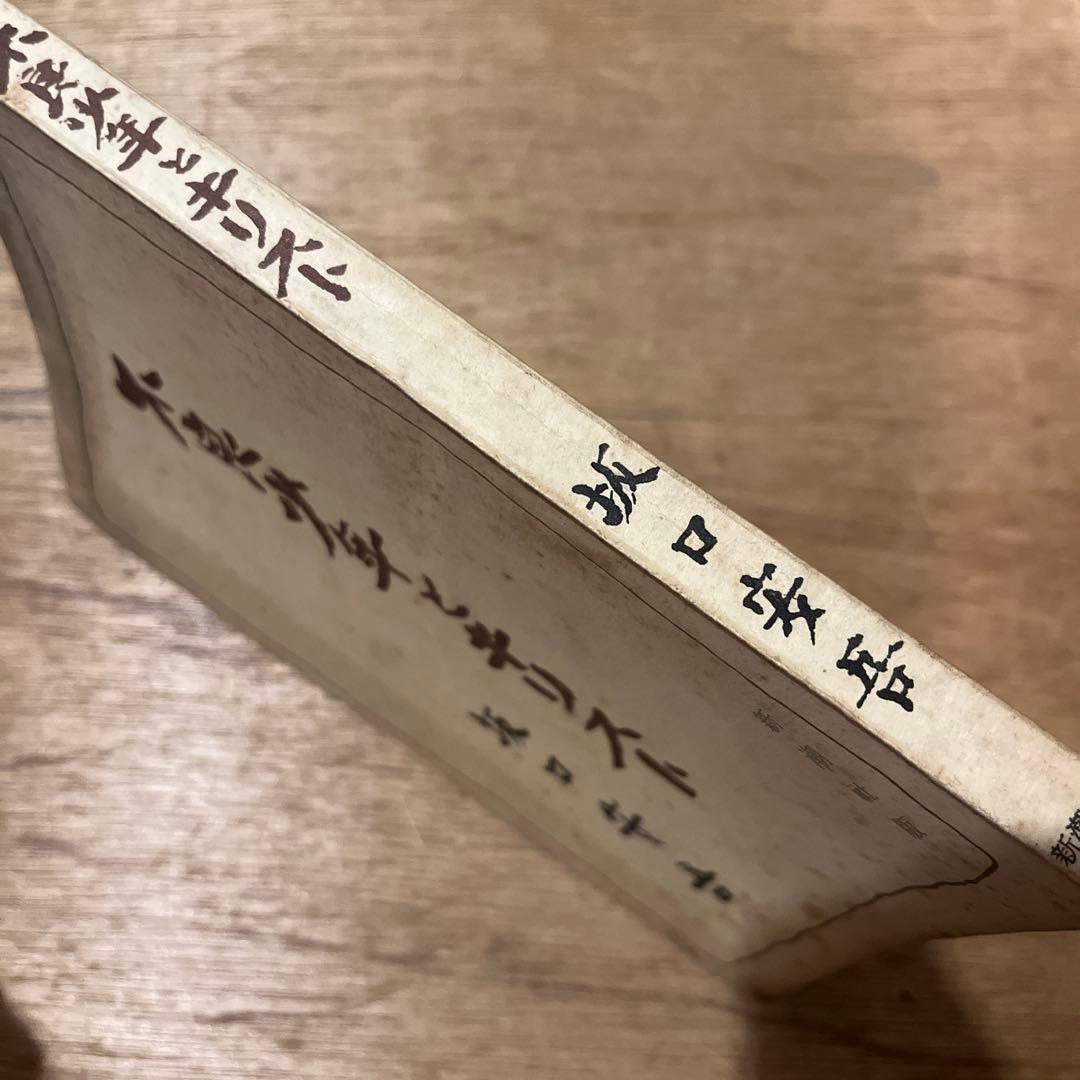 不良少年とキリスト
坂口安吾
新潮
不良少年とキリスト
坂口安吾
新潮社版